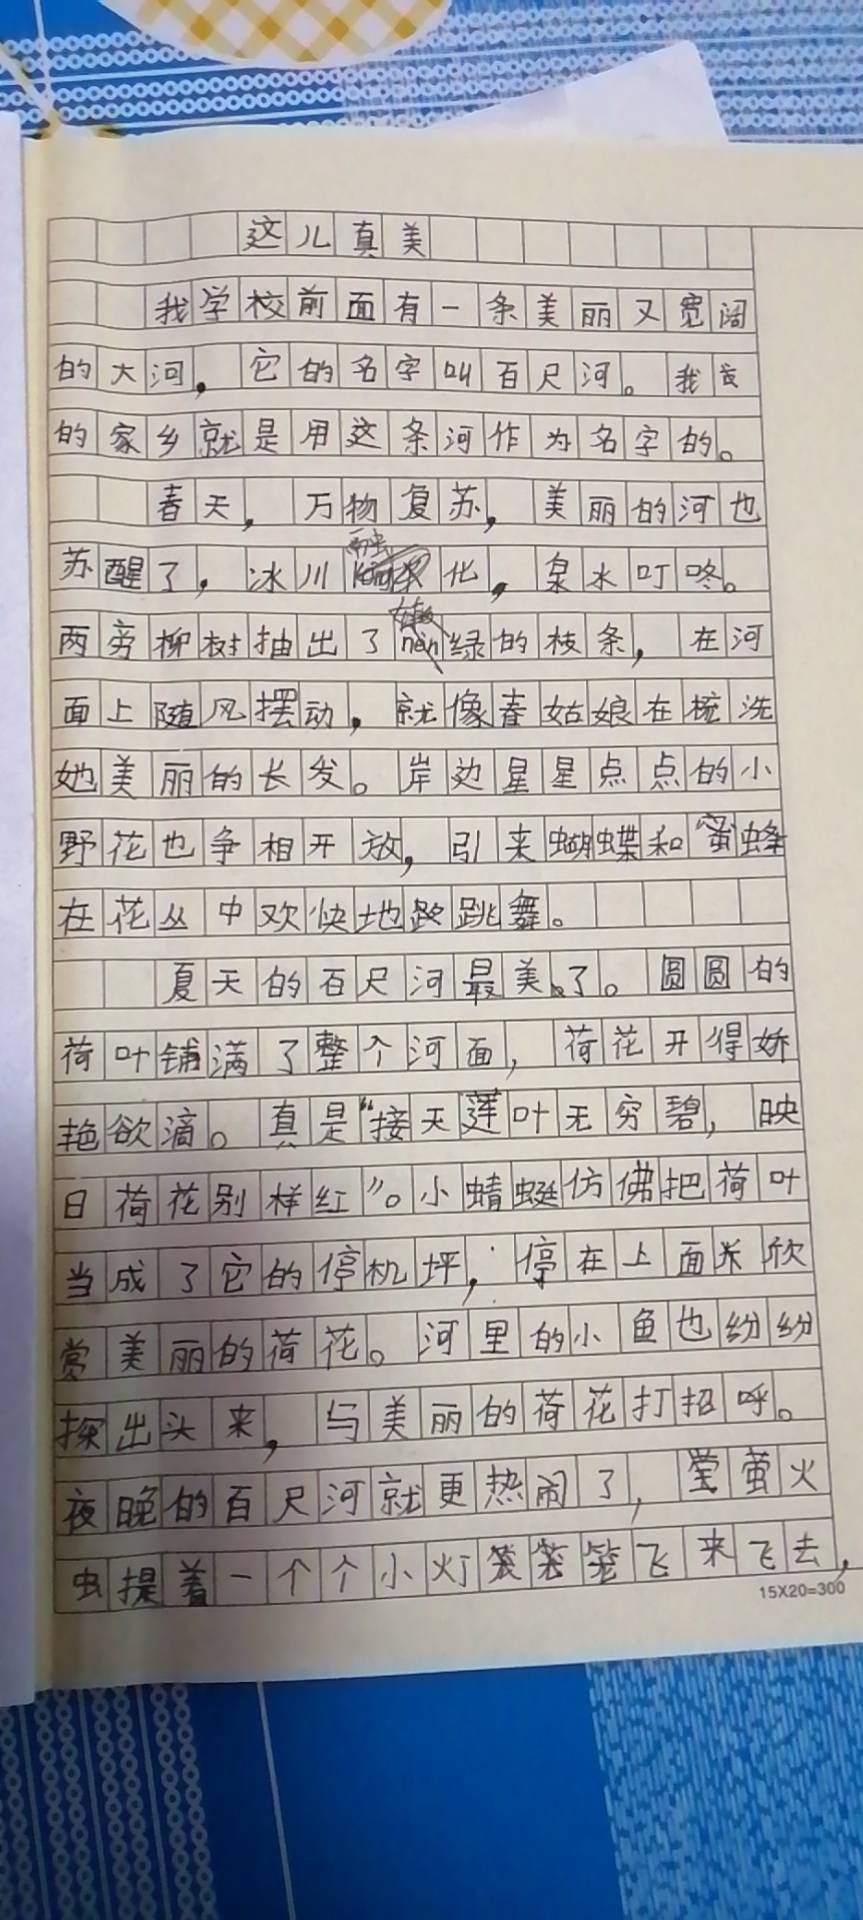 这儿真美
我学校前面有一条美丽又宽阔
的大河，它的名字叫百尺河。我
的家乡就是用这条河作为名字的。
春天，万物复苏，美丽的河也
苏醒了，冰川融化，泉水叮咚。
两旁柳树抽出了嫩绿的枝条，在河
面上随风摆动，就像春姑娘在梳洗
她美丽的长发。岸边星星点点的小
野花也争相开放，引来蝴蝶和蜜蜂
在花丛中欢快地跳舞。
夏天的百尺河最美了。圆圆的
荷叶铺满了整个河面，荷花开得娇
艳欲滴。真是“接天莲叶无穷碧，映
日荷花别样红”。小蜻蜓仿佛把荷叶
当成了它的停机坪，停在上面欣
赏美丽的荷花。河里的小鱼也纷纷
探出头来，与美丽的荷花打招呼。
夜晚的百尺河就更热闹了，萤火
虫提着一个个小灯笼飞来飞去，
15X20=300